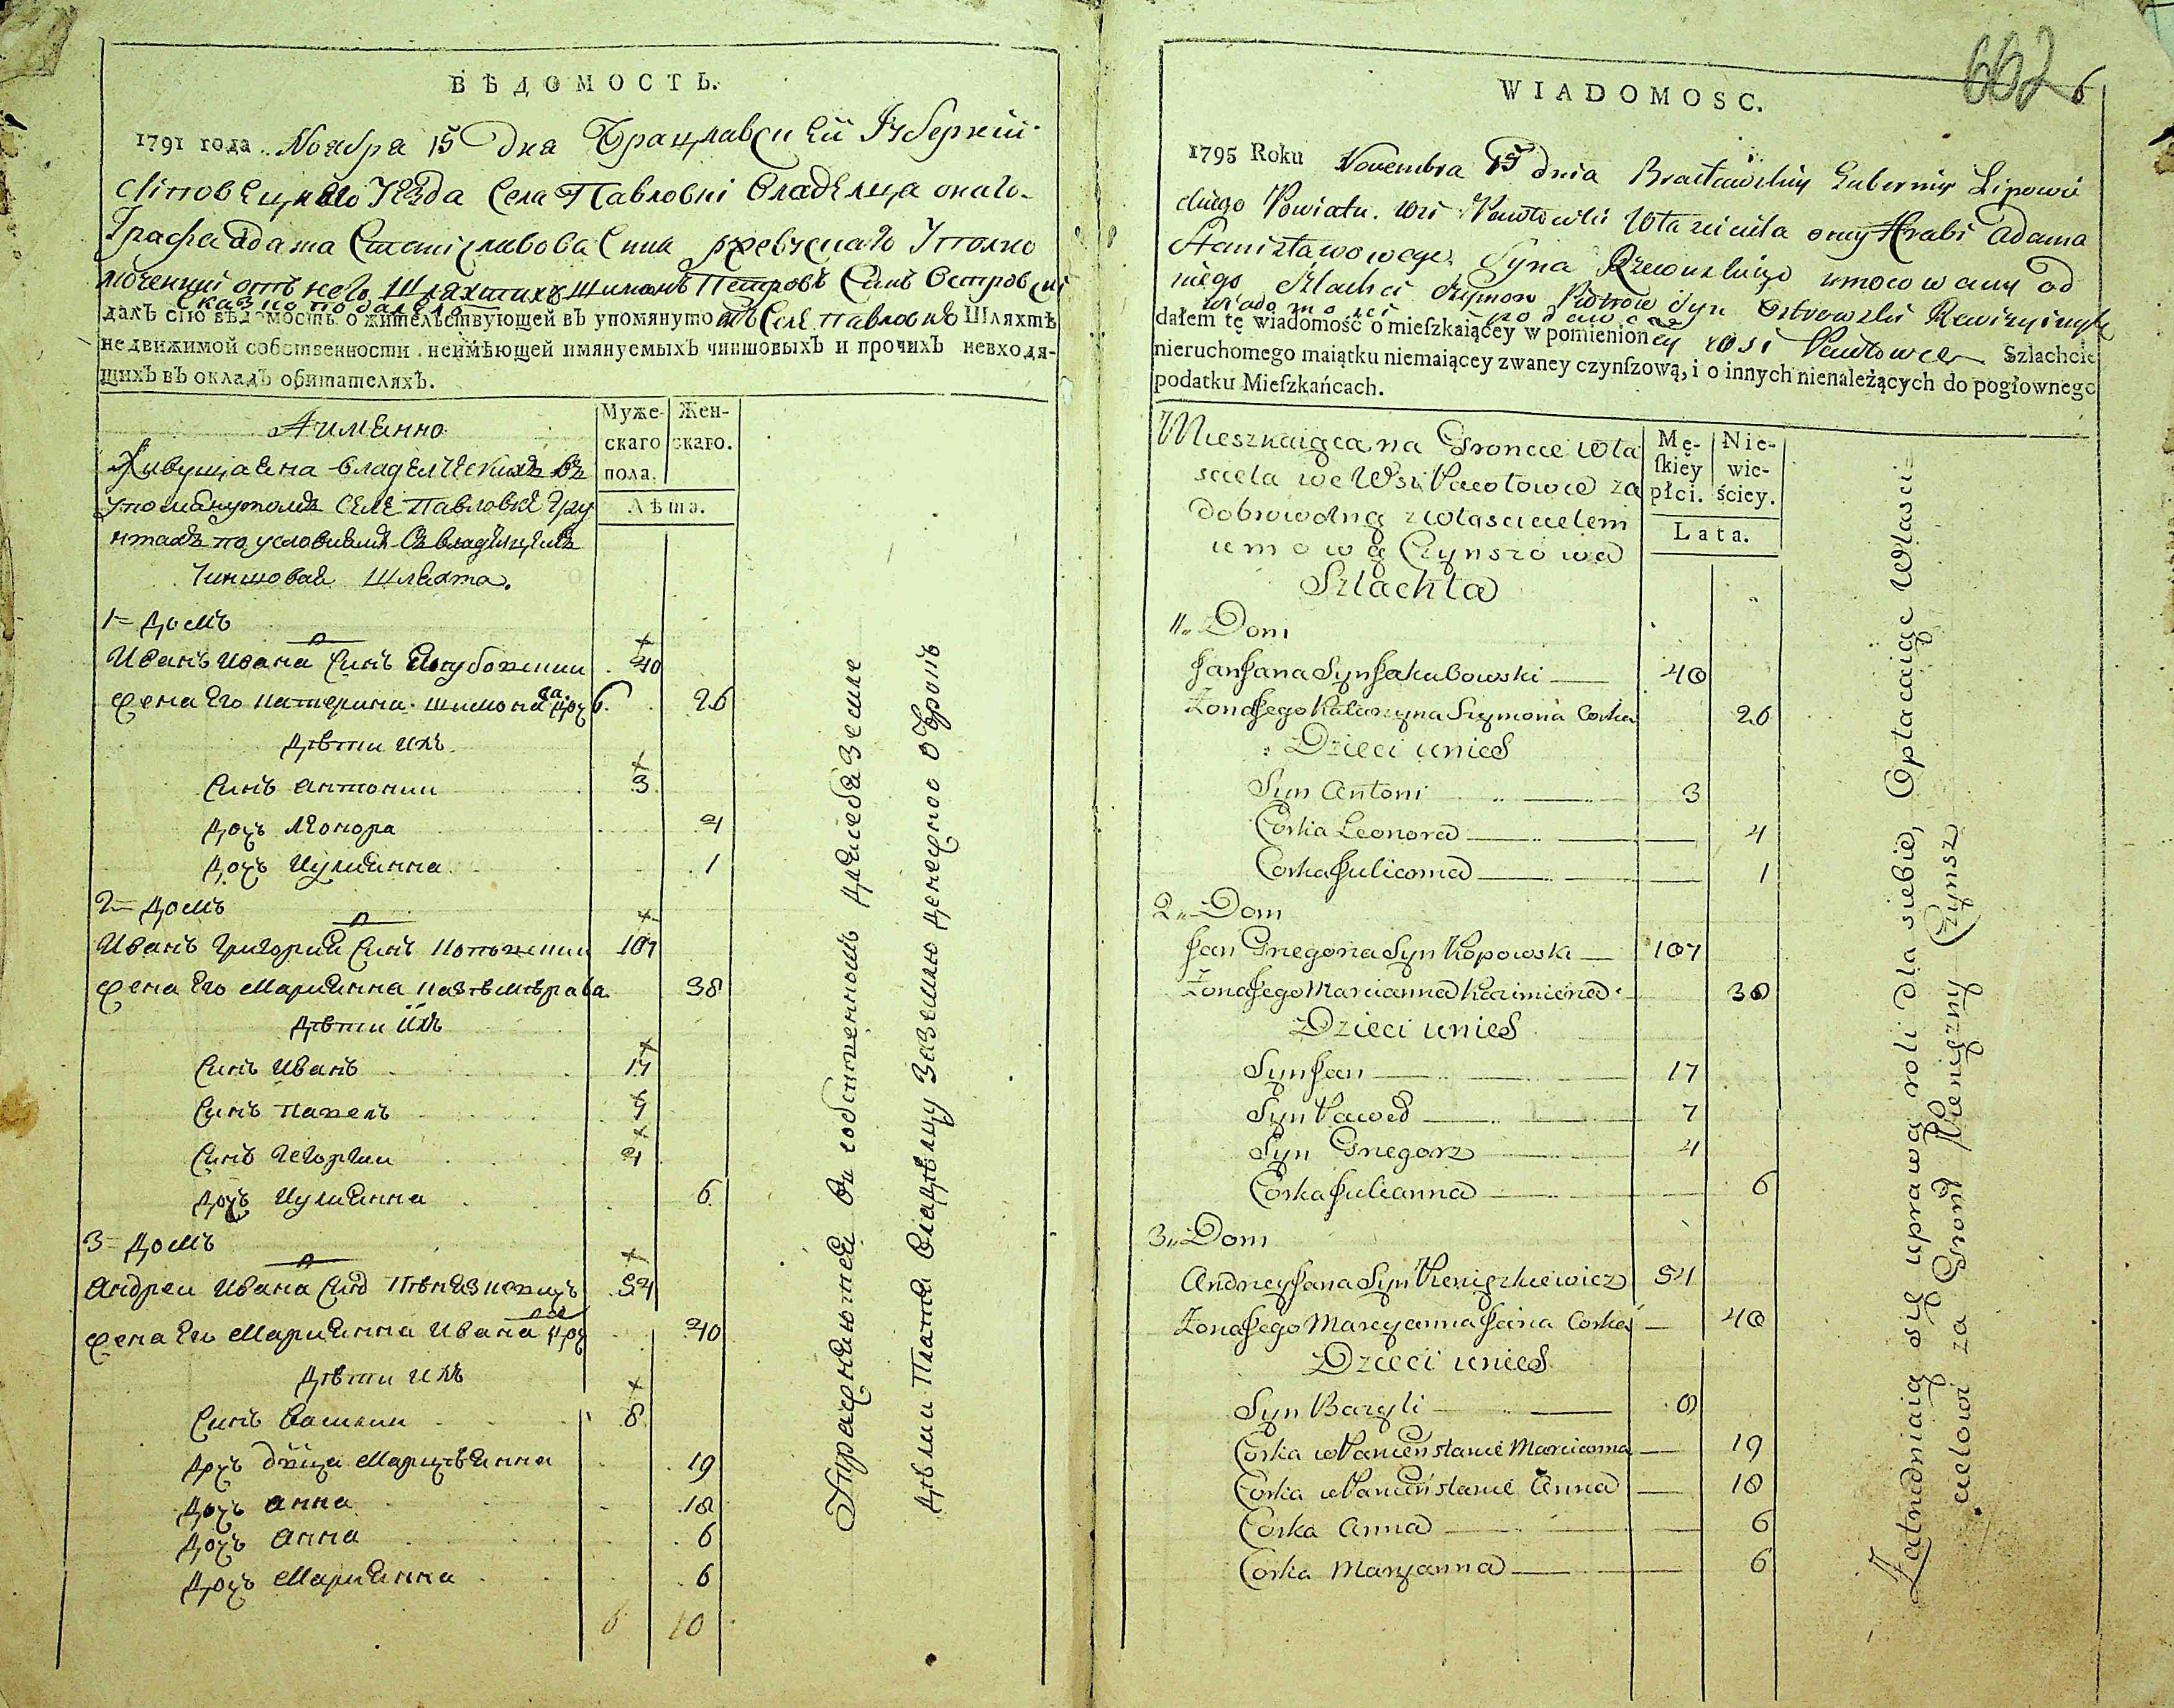 ВѢДОМОСТЬ.
1791 года Ноября 15 дня Брацлавской Губернии
Липовецкаго Уезда Села Павловки Владелца онаго
Графа Адама Станиславова Сина Ржевускаго Уполно
моченний отъ него Шляхтичъ Шимонъ Петровъ Синъ Островский
далъ сію вѣдомость о жительствующей въ упомянутомъ Селе Павловке Шляхтѣ
недвижимой собственности неимѣющей имянуемыхъ чиншовыхъ и прочихъ невходя-
щихъ въ окладъ обитателяхъ.
А именно
Муже-
скаго
пола.
Жен-
скаго.
Лѣта.
Живущая на владелческихъ въ
упомянутомъ Селе Павловке гру
нтахъ по условиямъ съ владелцемъ
Чиншовая Шляхта.
1 Домъ
Иванъ Ивана Синъ 40
жена его Катерина Шимона доч 26
Дѣти ихъ
Синъ Антоний 3
Дочъ Леонора 4
Дочъ Иулианна 1
2 Домъ
Иванъ Григория Синъ 107
жена его Марианна 38
Дѣти ихъ
Синъ Иванъ 17
Синъ Павелъ 7
Синъ 4
Дочъ Иулианна 6
3 Домъ
Андрей Ивана Синъ 54
жена его Марианна Ивана доч 40
Дѣти ихъ
Синъ 8
Дочъ 19
Дочъ Анна 18
Дочъ Анна 6
Дочъ Марианна 6
6 10
Упражняются въ собственномъ для себя земле
дѣлии Платя Владѣлцу За землю денежной Оброкъ
662 6
WIADOMOSC.
1795 Roku Novembra 15 dnia Bracławskiy Guberniy Lipowie
ckiego Powiatu wsi Pawłowki Własciciela onyy Hrabi Adama
Stanisławowego Syna Rzewuskiego umocowany od
niego Szlachci Szymon Piotrow Syn Ostrowski
dałem tę wiadomość o mieſzkaiącey w pomienioney wsi Pawłowce Szlachcie
nieruchomego maiątku niemaiącey zwaney czynſzową, i o innych nienależących do pogłownego
podatku Mieſzkańcach.
Mę-
ſkiey
płci.
Nie-
wie-
ściey.
Lata.
Mieszkaiąca na Gronccie Wła
sciela we Wsi Pawłowce za
dobrowolną z własciecelem
umową Czynszowa
Szlachta
1 Dom
Jan Jana Syn Jakubowski 40
Zona Jego Katarzyna Szymona Corka 26
Dzieci unich
Syn Antoni 3
Corka Leonora 4
Corka Julianna 1
2 Dom
Jan Gregorza Syn Kopowski 107
Zona Jego Marianna Kazimierza 38
Dzieci unich
Syn Jan 17
Syn Paweł 7
Syn Gregorz 4
Corka Julianna 6
3 Dom
Andrzey Jana Syn 54
Zona Jego Maryanna Jana Corka 40
Dzieci unich
Syn Bazyli 8
Corka w Panieństwie Marianna 19
Corka w Panieństwie Anna 18
Corka Anna 6
Corka Maryanna 6
Zatrudniaią się uprawą roli dla siebie, Opłacaiąc Własci
cielowi za Gront Pieniężny Czynsz